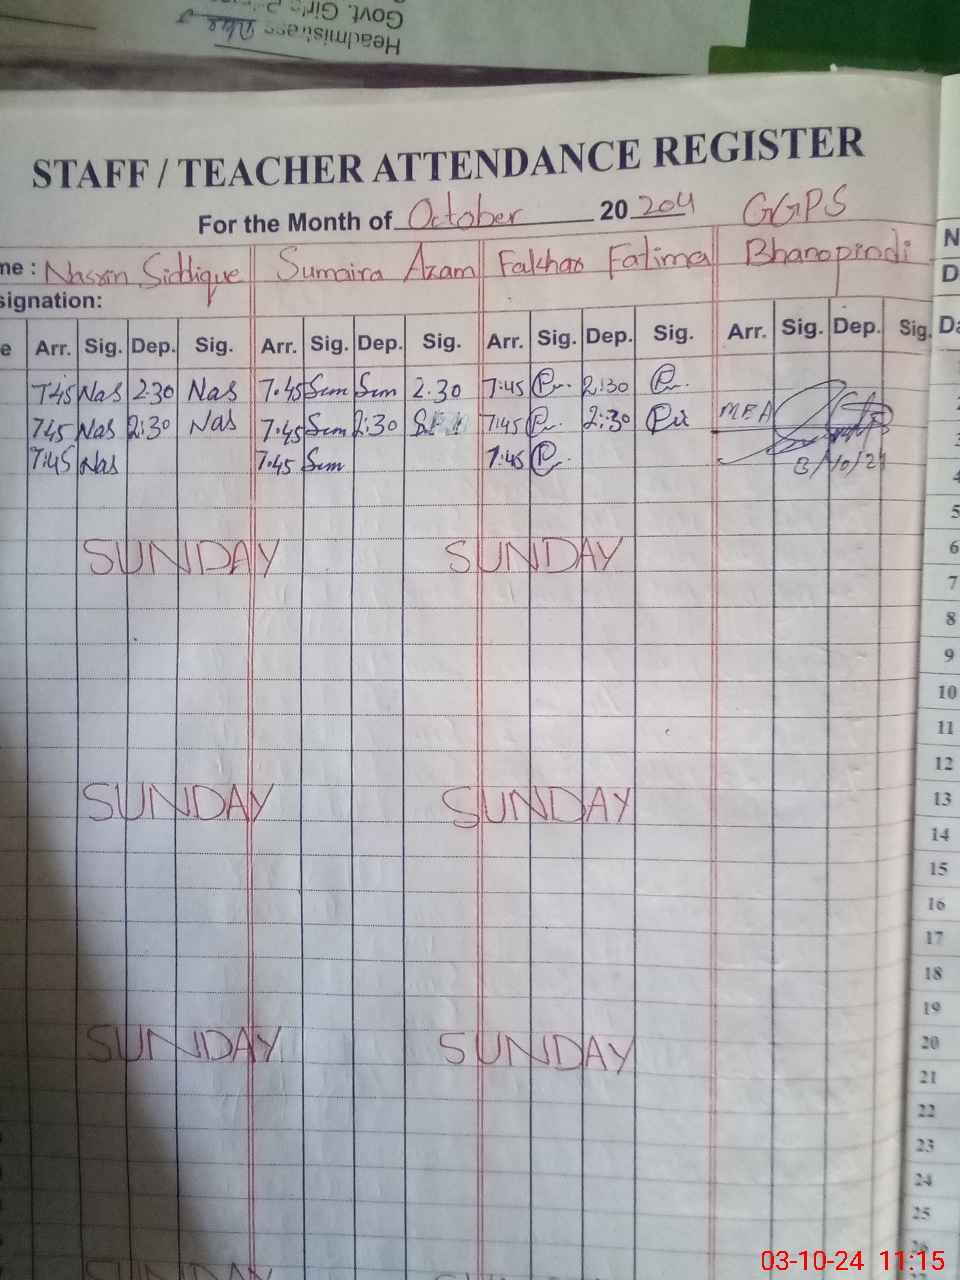 Headmistress
Govt. Girls
STAFF / TEACHER ATTENDANCE REGISTER
For the Month of October 20 204 GGPS
me : Nasrin Siddique Sumaira Azam Fakhar Fatima Bhanopindi N
signation: D
e Arr. Sig. Dep. Sig. Arr. Sig. Dep. Sig. Arr. Sig. Dep. Sig. Arr. Sig. Dep. Sig. Da
7:45 Nas 2:30 Nas 7.45 Sum Sum 2.30 7:45 2:30
7:45 Nas 2:30 Nas 7.45 Sum 2:30 7:45 2:30 MEA
7:45 Nas 7.45 Sum 7:45 3/10/24
4
5
SUNDAY SUNDAY 6
7
8
9
10
11
12
SUNDAY SUNDAY 13
14
15
16
17
18
19
SUNDAY SUNDAY 20
21
22
23
24
25
26
SUNDAY SUNDAY
03-10-24 11:15